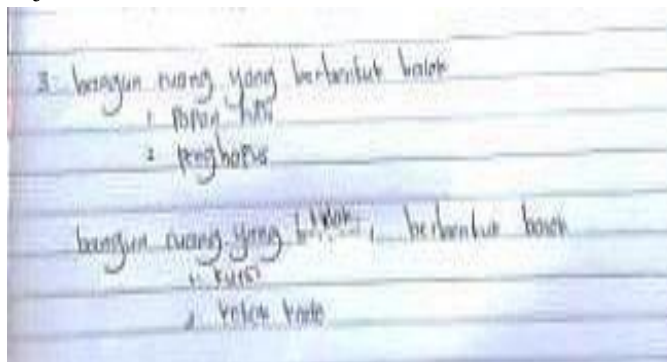 3. bangun ruang yang berbentuk balok
1. Papan tulis
2. penghapus
bangun ruang yang tidak, berbentuk balok
1. kursi
2. kotak